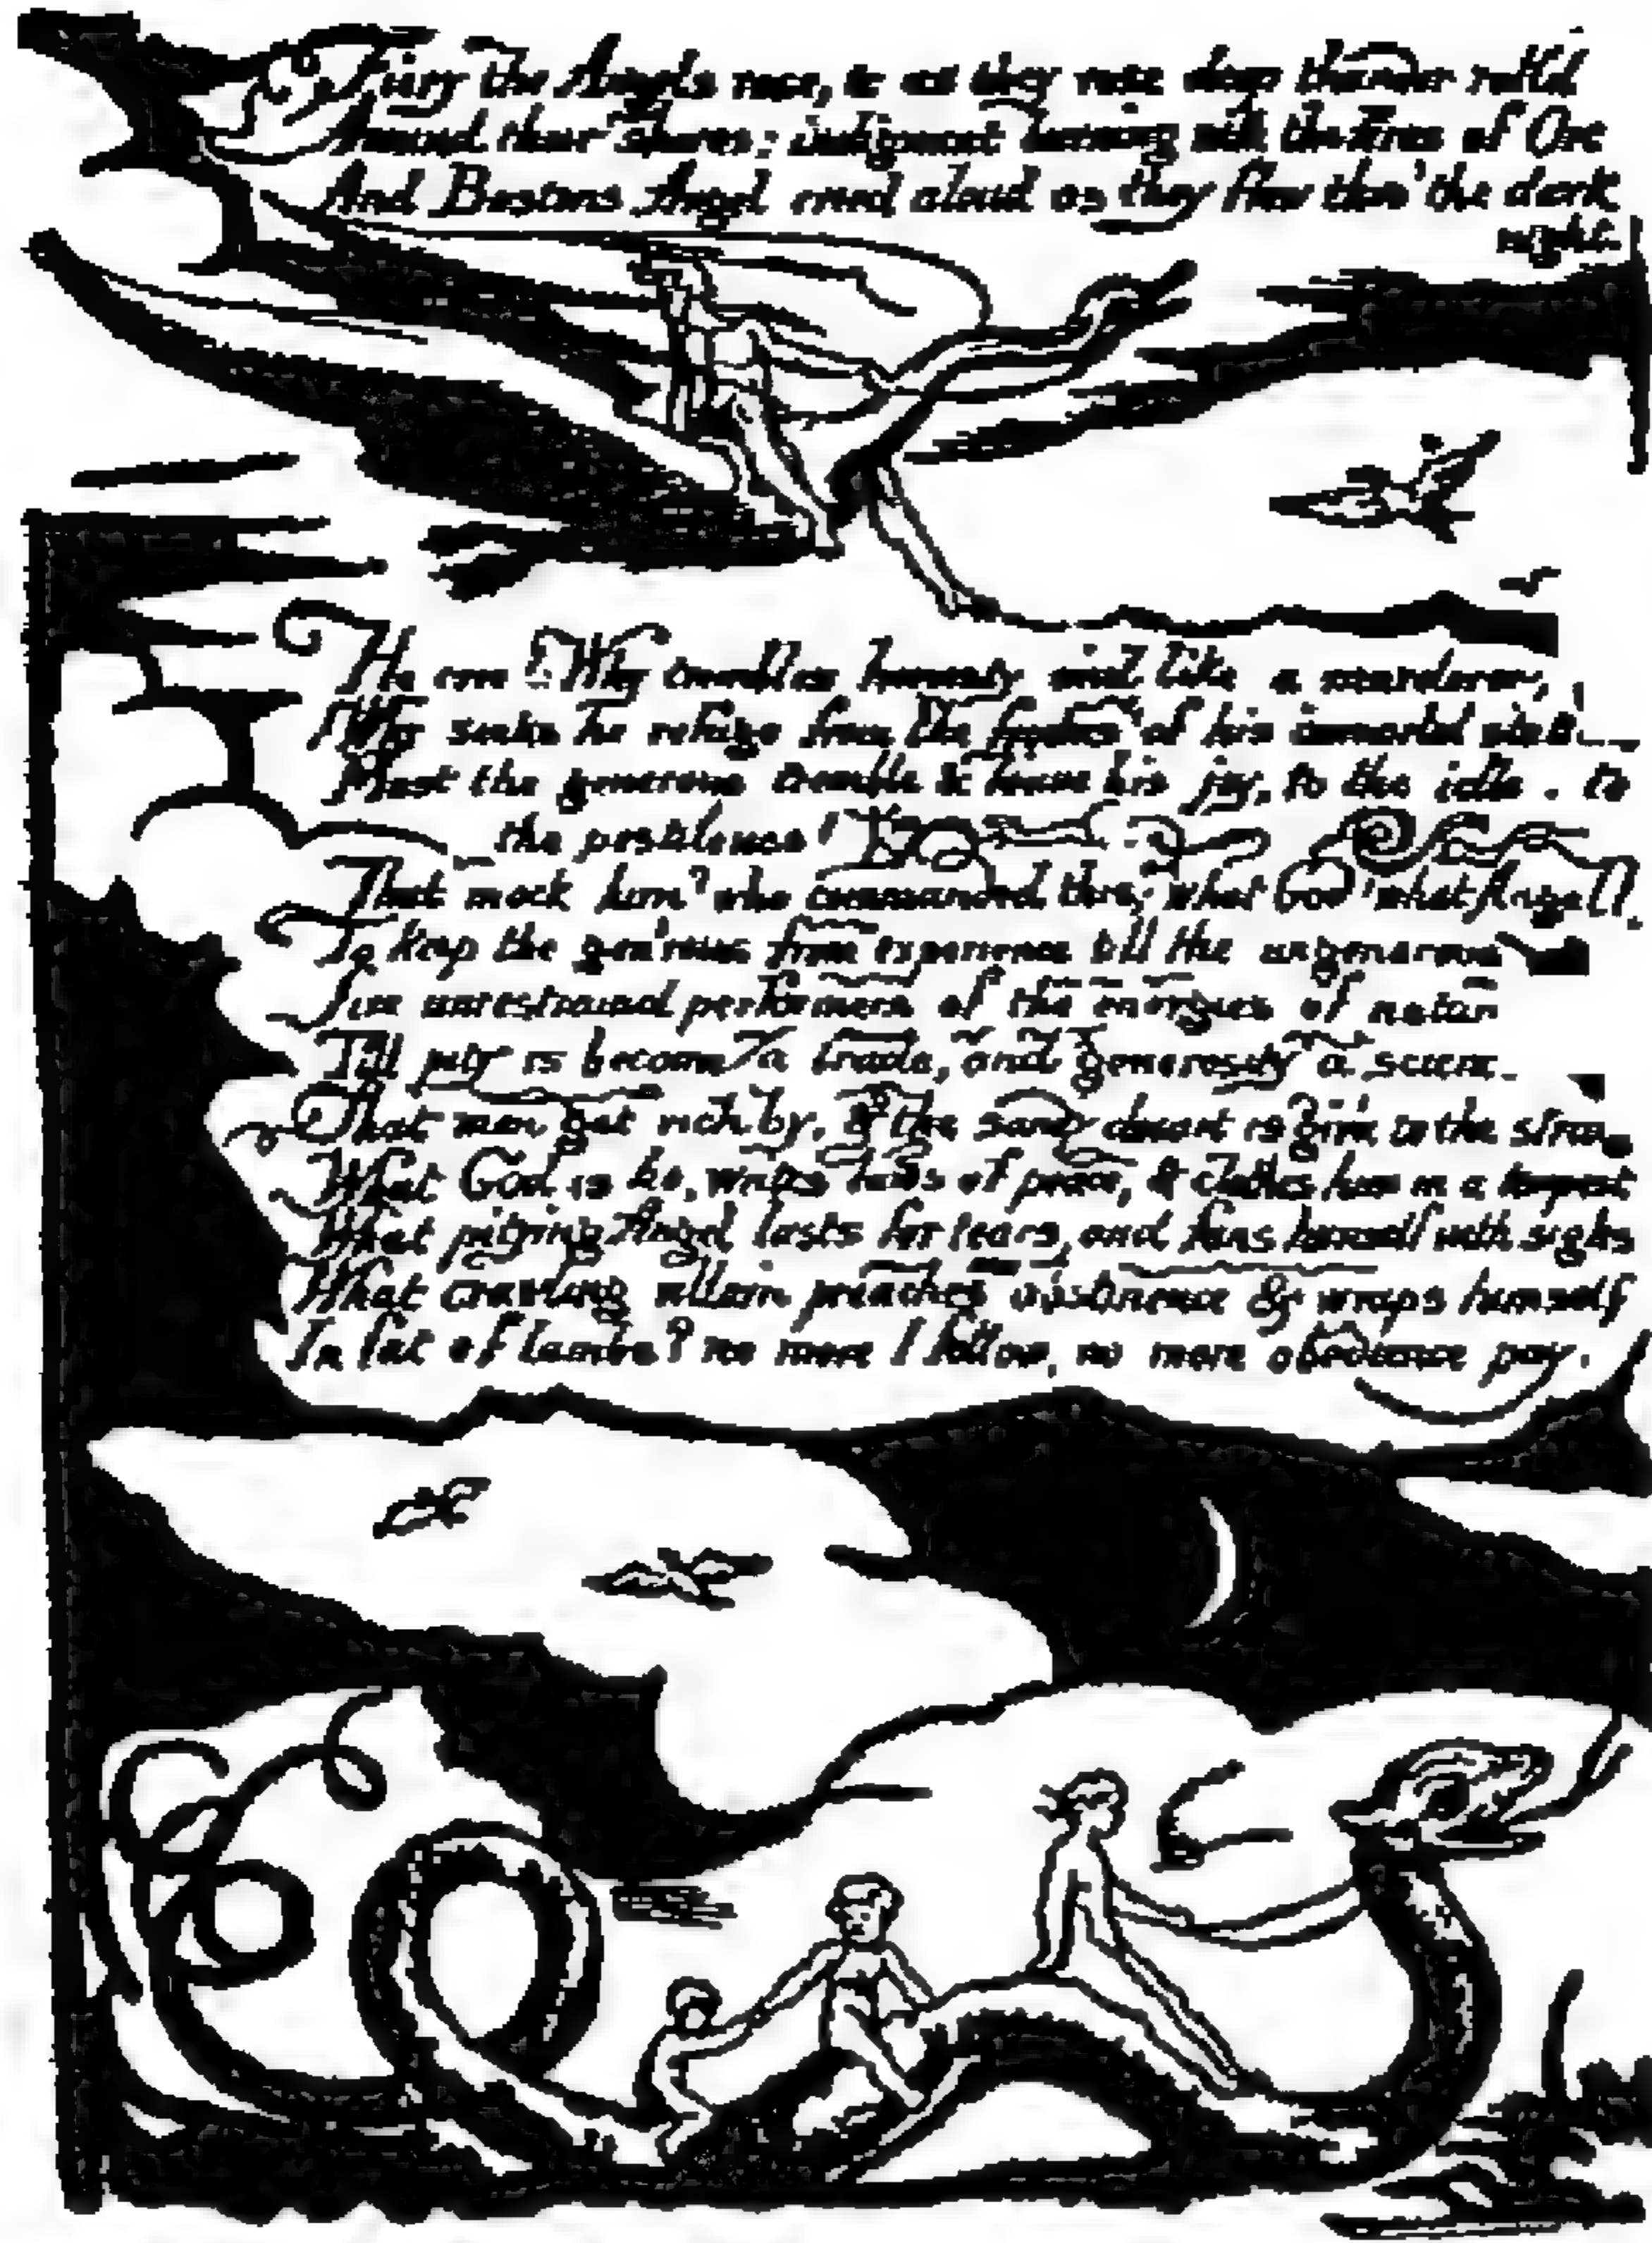 Fiery the Angels rose, & as they rose deep thunder roll'd
Around their shores: indignant burning with the fires of Orc
And Bostons Angel cried aloud as they flew thro' the dark
night.
He cried: Why trembles honesty and like a murderer,
Why seeks he refuge from the frowns of his immortal station!
Must the generous tremble & leave his joy, to the idle: to
the pestilence!
That mock him? who commanded this? what God? what Angel!
To keep the gen'rous from experience till the ungenerous
Are unrestraind performers of the energies of nature
Till pity is become a trade, and generosity a science
That men get rich by, & the sandy desart is giv'n to the strong
What God is he, writes laws of peace, & clothes him in a tempest
What pitying Angel lusts for tears, and fans himself with sighs
What crawling villain preaches abstinence & wraps himself
In fat of lambs? no more I follow, no more obedience pay.